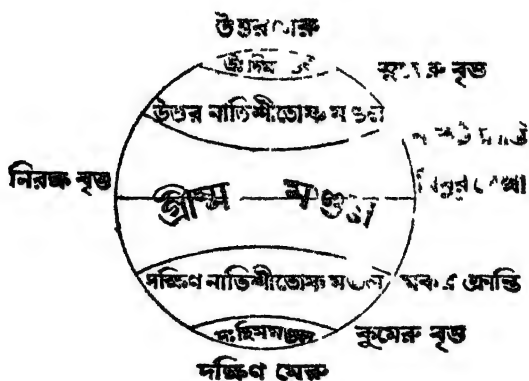 উত্তর মেরু
হিম
সুমেরু বৃত্ত
উত্তর নাতিশীতোষ্ণ মণ্ডল
নিরক্ষ বৃত্ত
গ্রীষ্ম মণ্ডল
রেখা
দক্ষিণ নাতিশীতোষ্ণ মণ্ডল মকর ক্রান্তি
দঃ হিমমণ্ডল
কুমেরু বৃত্ত
দক্ষিণ মেরু